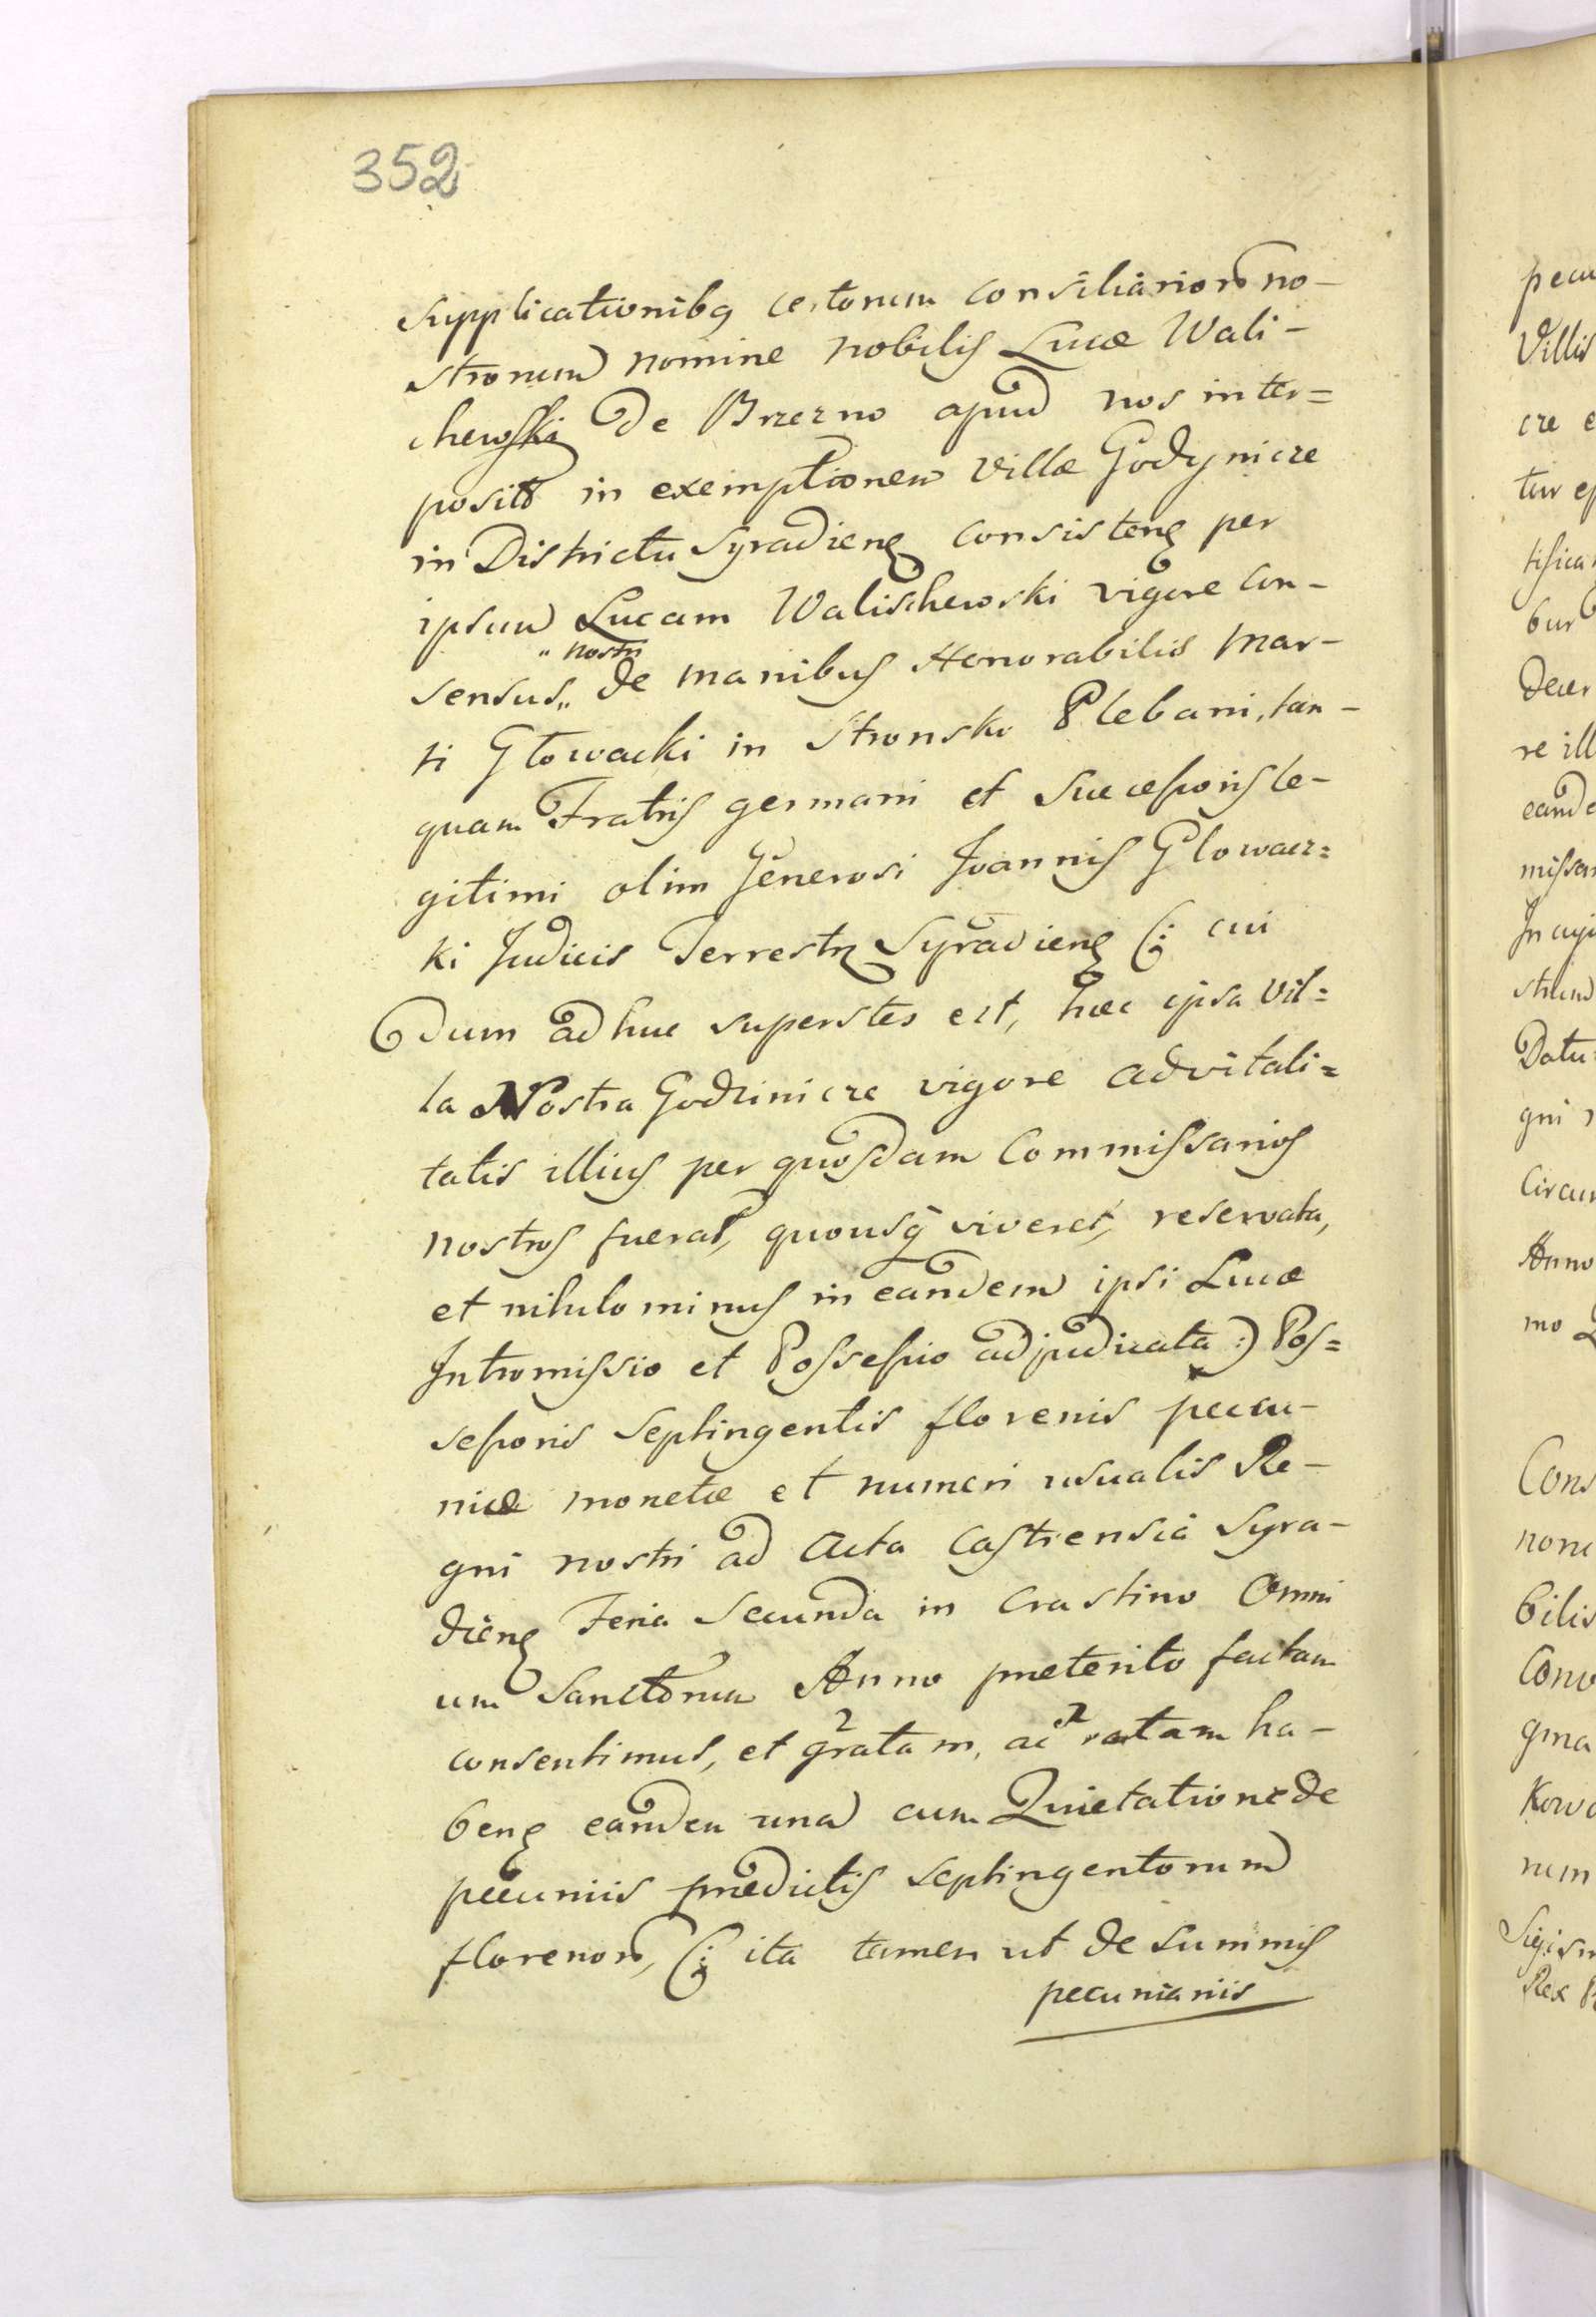 352
supplicationibꝫ certorum consiliariorũ no-
strorum nomine nobilis Lucæ Wali-
chewski de Brzezno apud nos inter=
posito in exemptionem villæ Godynicze
in Districtu Syradienꝫ consistenꝫ per
ipsum Lucam Walischewski vigore Con-
„ nostri
sensus„ de manibus Honorabilis Mar-
ti Głowacki in Stronsko Plebani, tan-
quam Fratris germani et Successoris le-
gitimi olim Generosi Joannis Glowacz=
ki Judicis Terrestrꝫ Syradienꝫ (: cui
dum adhuc superstes est, hæc ipsa Vil=
la Nostra Godzinicze vigore advitali=
tatis illius per quosdam Commissarios
nostros fuerat, quousq̃ viveret, reservata,
et nihilo minus in eandem ipsi Lucæ
Intromissio et Possessio adjudicata :) Pos=
sessoris Septingentis florenis pecu-
niæ monetæ et numeri usualis Re-
gni nostri ad Acta Castrensia Syra-
dienꝫ Feria Secunda in Crastino Omni
um Sanctorum Anno præterito factam
consentimus, et gratam, ac ratam ha-
benꝫ eandem una cum Quietatione de
pecuniis prædictis Septingentorum
florenorũ, (: ita tamen ut de summis
pecuniariis
pecu
Villis
cze e
tur
bur
re ill
eande
missar
Datu
gni
Circum
Anno
mo
Cons
none
bilis
gma
num
Sigism
Rex